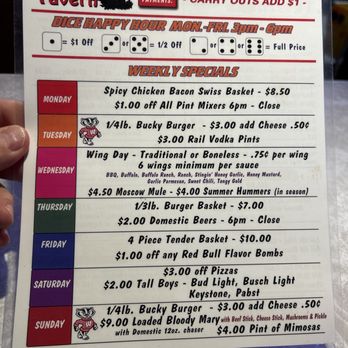 Tavern
PAYMENTS.
- CARRY OUTS ADD $1 -
DICE HAPPY HOUR MON.-FRI. 3pm - 6pm
= $1 Off or = 1/2 Off or or = Full Price
WEEKLY SPECIALS
MONDAY
Spicy Chicken Bacon Swiss Basket - $8.50
$1.00 off All Pint Mixers 6pm - Close
TUESDAY
1/4lb. Bucky Burger - $3.00 add Cheese .50¢
$3.00 Rail Vodka Pints
WEDNESDAY
Wing Day - Traditional or Boneless - .75¢ per wing
6 wings minimum per sauce
BBQ, Buffalo, Buffalo Ranch, Ranch, Stingin' Honey Garlic, Honey Mustard,
Garlic Parmesan, Sweet Chili, Tangy Gold
$4.50 Moscow Mule - $4.00 Summer Hummers (in season)
THURSDAY
1/3lb. Burger Basket - $7.00
$2.00 Domestic Beers - 6pm - Close
FRIDAY
4 Piece Tender Basket - $10.00
$1.00 off any Red Bull Flavor Bombs
SATURDAY
$3.00 off Pizzas
$2.00 Tall Boys - Bud Light, Busch Light
Keystone, Pabst
SUNDAY
1/4lb. Bucky Burger - $3.00 add Cheese .50¢
$9.00 Loaded Bloody Mary with Beef Stick, Cheese Stick, Mushrooms & Pickle
with Domestic 12oz. chaser $4.00 Pint of Mimosas